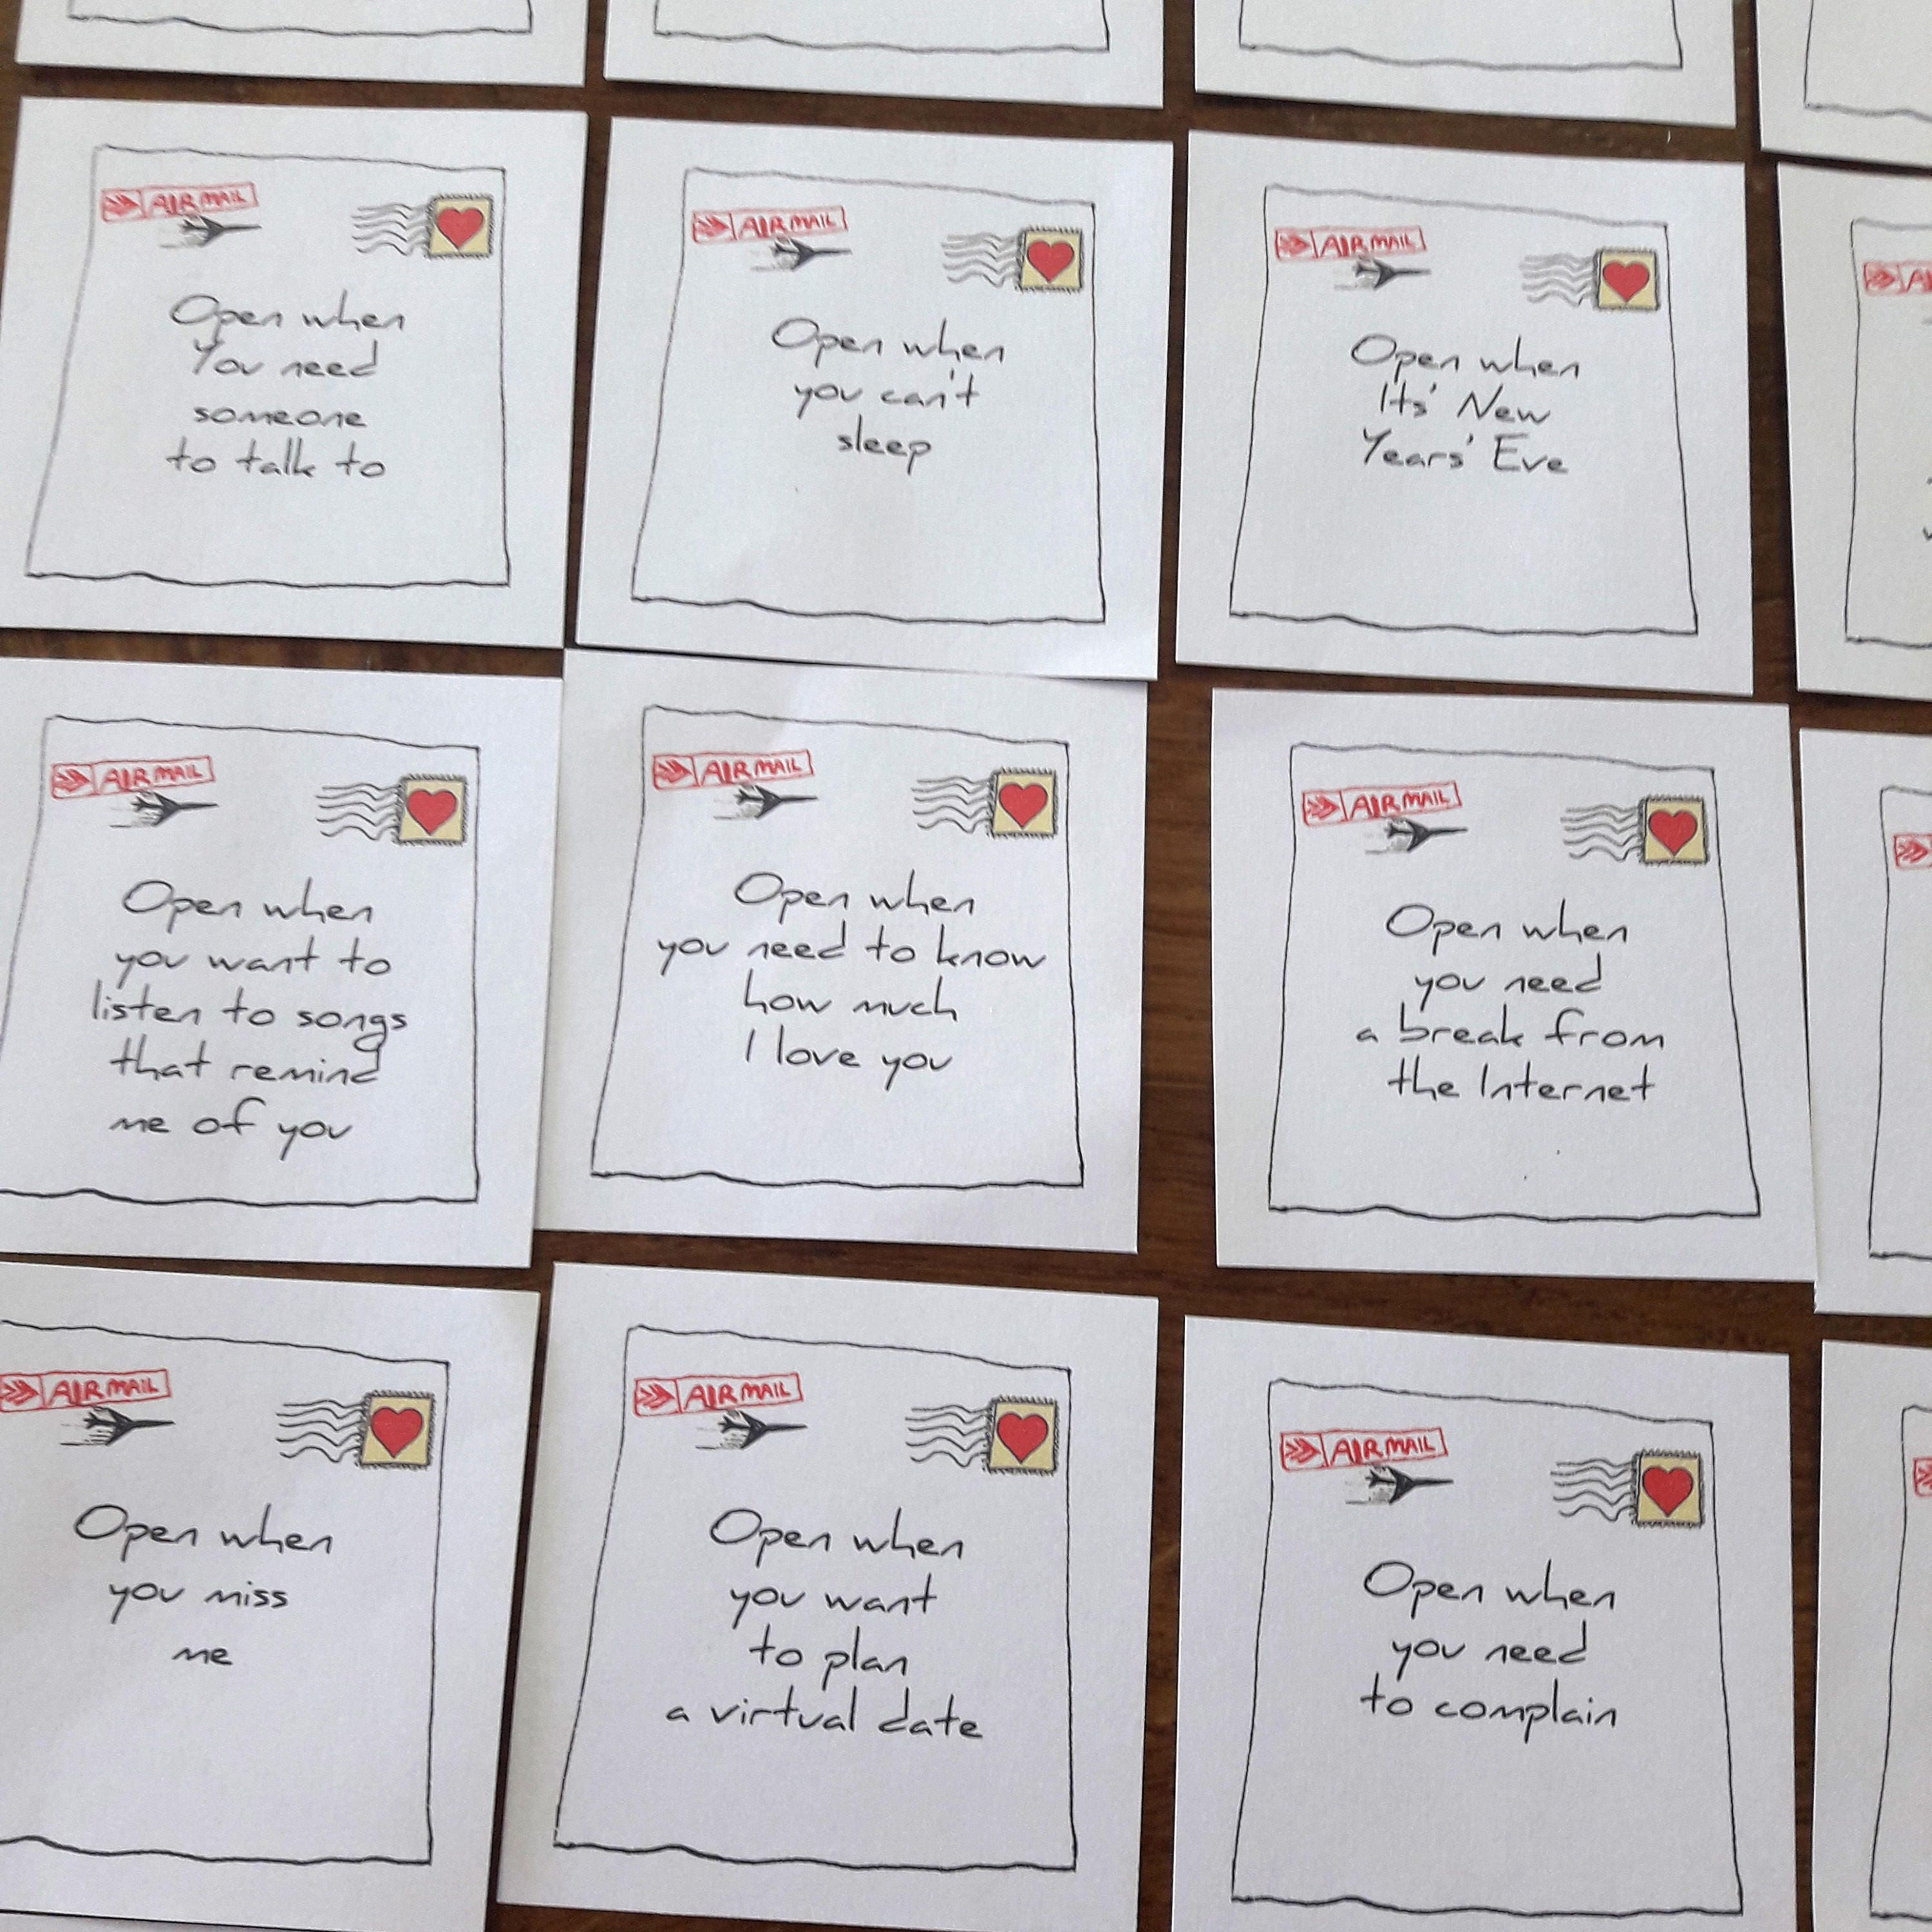 AIR MAIL
Open when
You need
someone
to talk to
AIR MAIL
Open when
you can't
sleep
AIR MAIL
Open when
Its' New
Years' Eve
AIR MAIL
Open when
you want to
listen to songs
that remind
me of you
AIR MAIL
Open when
you need to know
how much
I love you
AIR MAIL
Open when
you need
a break from
the Internet
AIR MAIL
Open when
you miss
me
AIR MAIL
Open when
you want
to plan
a virtual date
AIR MAIL
Open when
you need
to complain